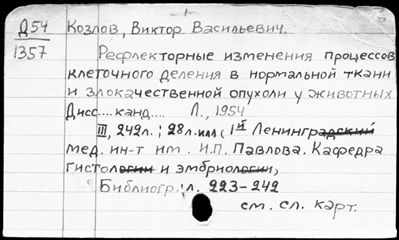 - 1 -
Д54 Козлов, Виктор Васильевич.
1357
Рефлекторные изменения процессов
клеточного деления в нормальной ткани
и злокачественной опухоли у животных
Дисс....канд.... Л., 1954
III, 242л.; 28л.илл. (1й Ленинградский
мед. ин-т им. И.П. Павлова. Кафедра
гистологии и эмбриологии,
Библиогр.: л. 223-242
см. сл. карт.